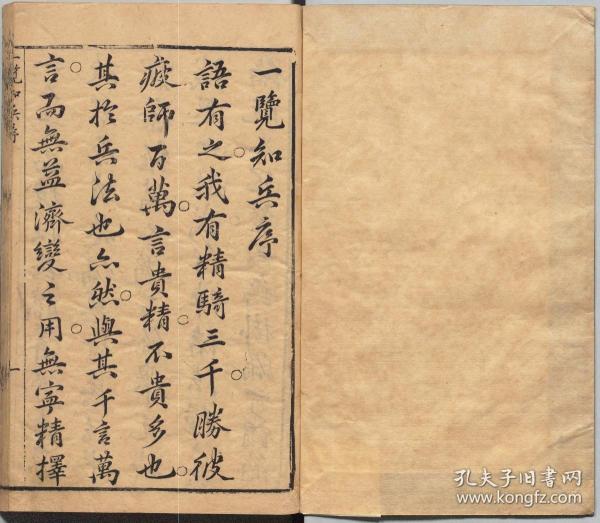 一覽知兵序
語有之我有精騎三千勝彼
疲師百萬言貴精不貴多也
其於兵法也亦然與其千言萬
言而無益濟變之用無寧精擇
一覽知兵序
一
孔夫子旧书网
www.kongfz.com